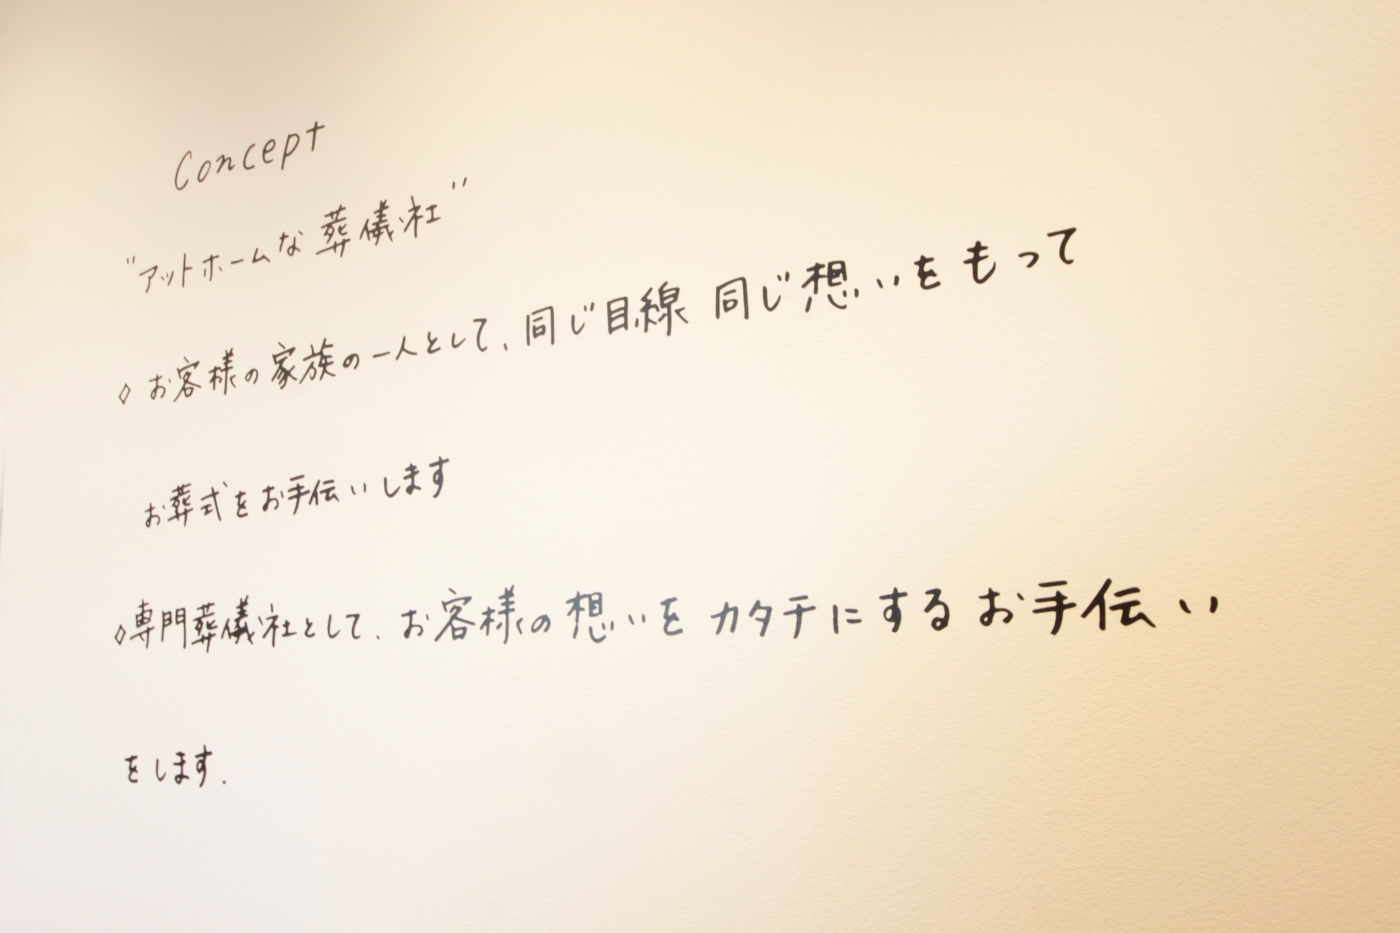 Concept
"アットホームな葬儀社"
◇お客様の家族の一人として、同じ目線 同じ想いをもって
お葬式をお手伝いします
◇専門葬儀社として、お客様の想いをカタチにするお手伝い
をします.